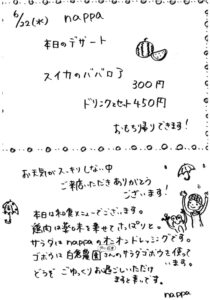 6/22(水) nappa
本日のデザート
スイカのババロア
300円
ドリンクとセット450円
おもち帰りできます!
お天気がスッキリしない中
ご来店いただきありがとう
ございます!
本日は和食メニューでございます。
鶏肉は葱を乗せてさっぱりと。
サラダはnappaのオニオンドレッシングです。
ゴボウは白倉農園さんのサラダゴボウを使って
います。
どうぞごゆっくりお過ごしいただけ
ますと幸いです。
nappa